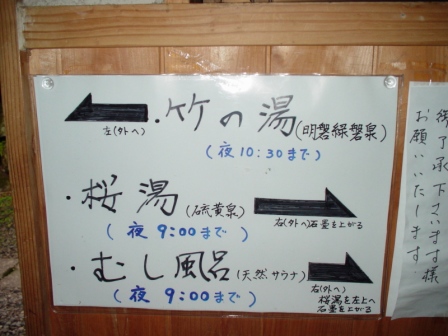 ・竹の湯(明礬緑礬泉)
左(外へ)
(夜10:30まで)
・桜湯(硫黄泉)
右(外へ)石墨を上がる
(夜9:00まで)
・むし風呂(天然サウナ)
右(外へ)
桜湯を左上へ
石墨を上がる
(夜9:00まで)
御了承下さいます様
お願いいたします